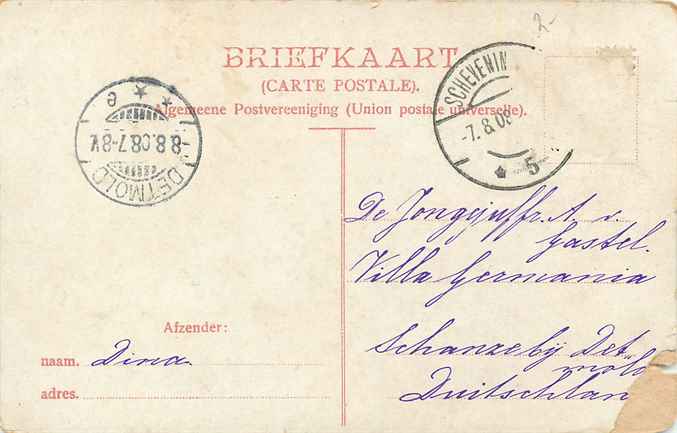 2-
BRIEFKAART
(CARTE POSTALE).
Algemeene Postvereeniging (Union postale universelle).
SCHEVENIN
-7.8.08
5
DETMOLD
8.8.08.7-8V.
* * e
De Jongejuffr. A. v.
Gastel.
Villa Germania
Schanze bij Det-
mold
Duitschlan
Afzender:
naam. Dina.
adres.